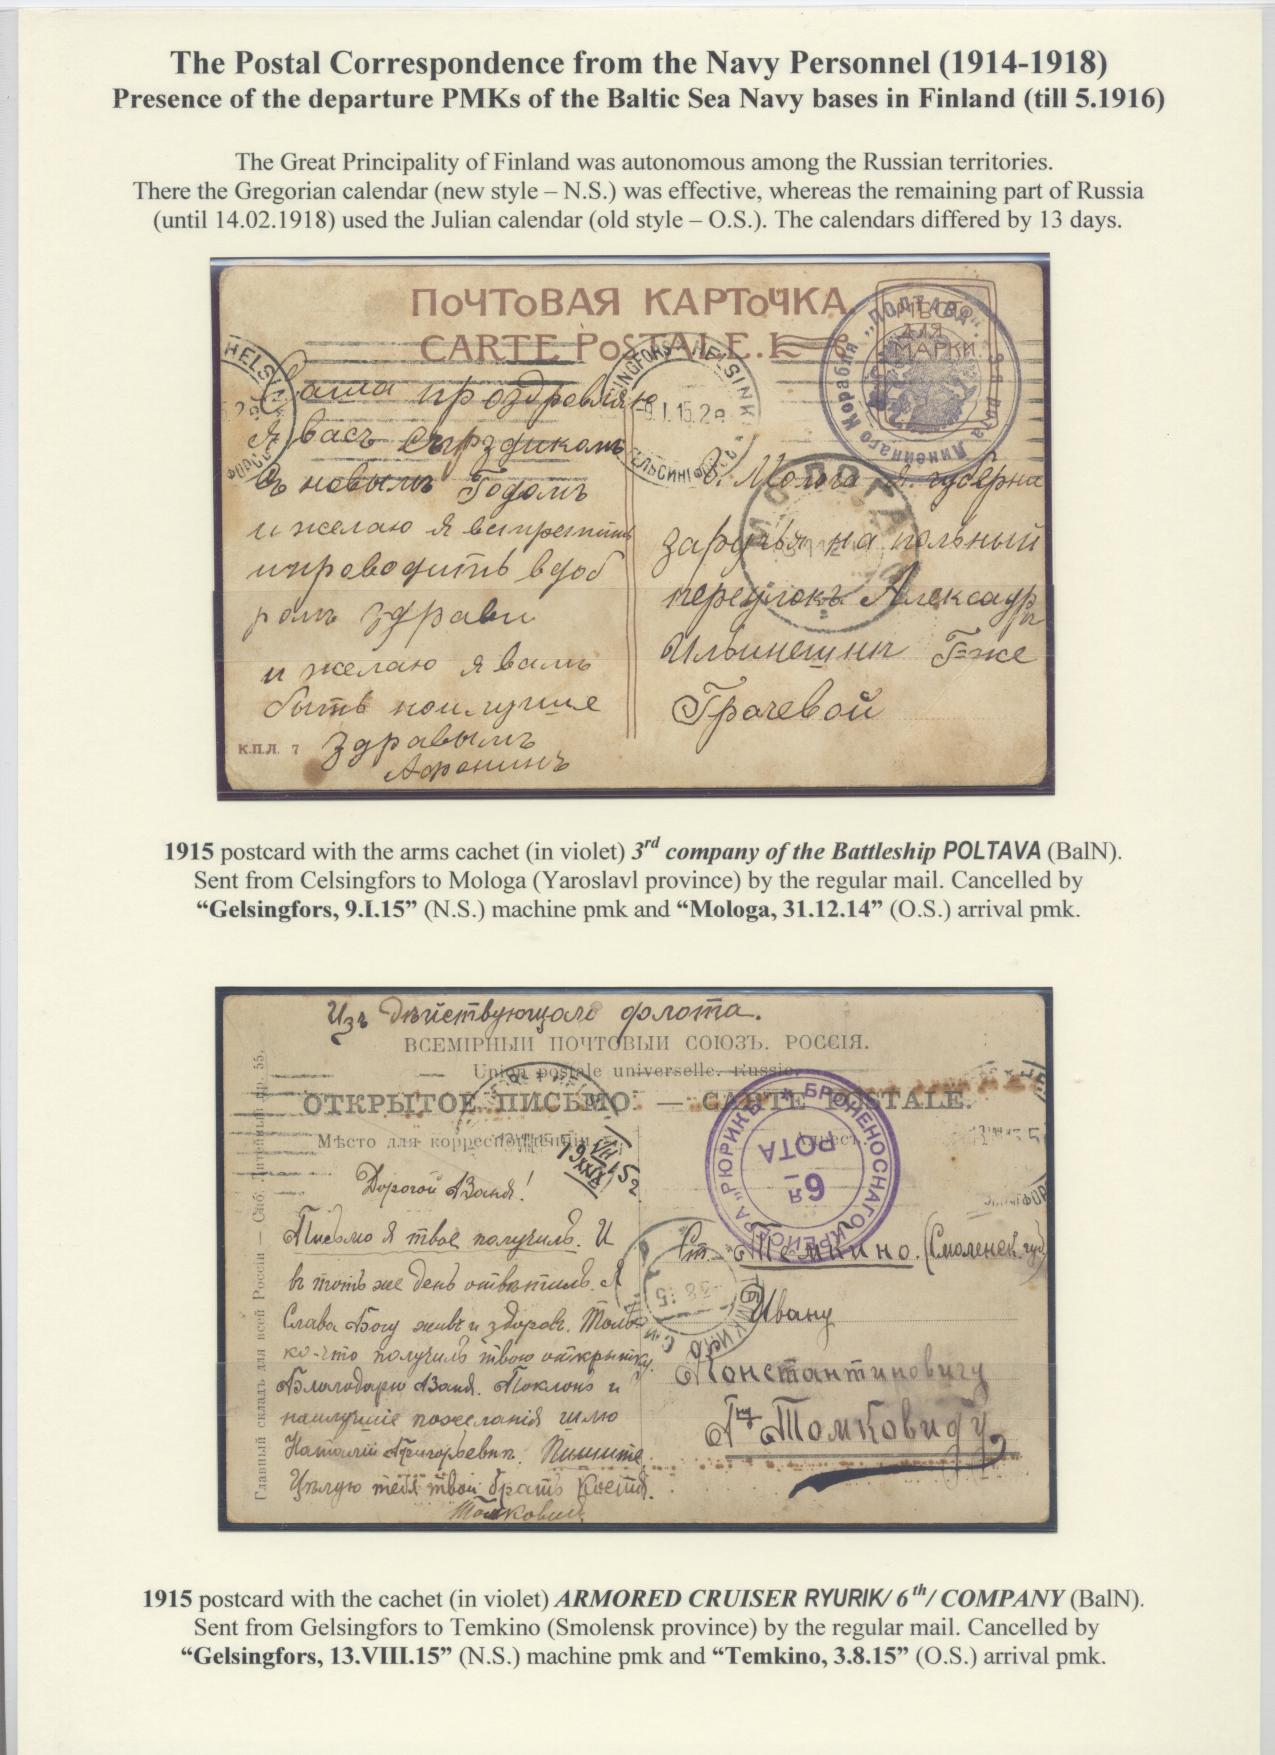 The Postal Correspondence from the Navy Personnel (1914-1918)
Presence of the departure PMKs of the Baltic Sea Navy bases in Finland (till 5.1916)
The Great Principality of Finland was autonomous among the Russian territories.
There the Gregorian calendar (new style – N.S.) was effective, whereas the remaining part of Russia
(until 14.02.1918) used the Julian calendar (old style – O.S.). The calendars differed by 13 days.
ПОЧТОВАЯ КАРТОЧКА
CARTE POSTALE.
МѢСТО
ДЛЯ
МАРКИ
3-я рота Линейнаго Корабля „ПОЛТАВА“
HELSIN
HELSINK
9.I.15.2
Саша проздровляю
Я васъ
съ новымъ Годомъ
и желаю я встретить
ипроводить вдоб
ромъ здрави
и желаю я вамъ
быть
здравымъ
К.П.Л. 7
МОЛОГА
г. Молога Я. губерна
на польный
переулокъ
Г-же
Грачевой
1915 postcard with the arms cachet (in violet) 3rd company of the Battleship POLTAVA (BalN).
Sent from Celsingfors to Mologa (Yaroslavl province) by the regular mail. Cancelled by
“Gelsingfors, 9.I.15” (N.S.) machine pmk and “Mologa, 31.12.14” (O.S.) arrival pmk.
Изъ дѣйствующаго флота.
ВСЕМІРНЫЙ ПОЧТОВЫЙ СОЮЗЪ. РОССІЯ.
Union postale universelle. Russie.
ОТКРЫТОЕ ПИСЬМО — CARTE POSTALE.
Мѣсто для корреспонденціи
Адресъ
БРОНЕНОСНАГО КРЕЙСЕРА „РЮРИКЪ“
6Я
РОТА
Главный складъ для всей Россіи — Спб. Литейный пр. 55.
Дорогой Ваня!
Письмо я твое получилъ. И
въ тотъ же день отвѣтилъ. Я
Слава Богу живъ и здоровъ. Толь-
ко-что получилъ твою открытку.
Благодарю Ваня. Поклонъ и
наилучшіе пожеланія шлю
Наталіи Григорьевнѣ. Пишите
Цѣлую тебя твой братъ Костя.
Томковидъ
3 8 15
Ст. Темкино. (Смоленск. губ)
Ивану
Константиновичу
Томковиду
1915 postcard with the cachet (in violet) ARMORED CRUISER RYURIK/ 6th/ COMPANY (BalN).
Sent from Gelsingfors to Temkino (Smolensk province) by the regular mail. Cancelled by
“Gelsingfors, 13.VIII.15” (N.S.) machine pmk and “Temkino, 3.8.15” (O.S.) arrival pmk.